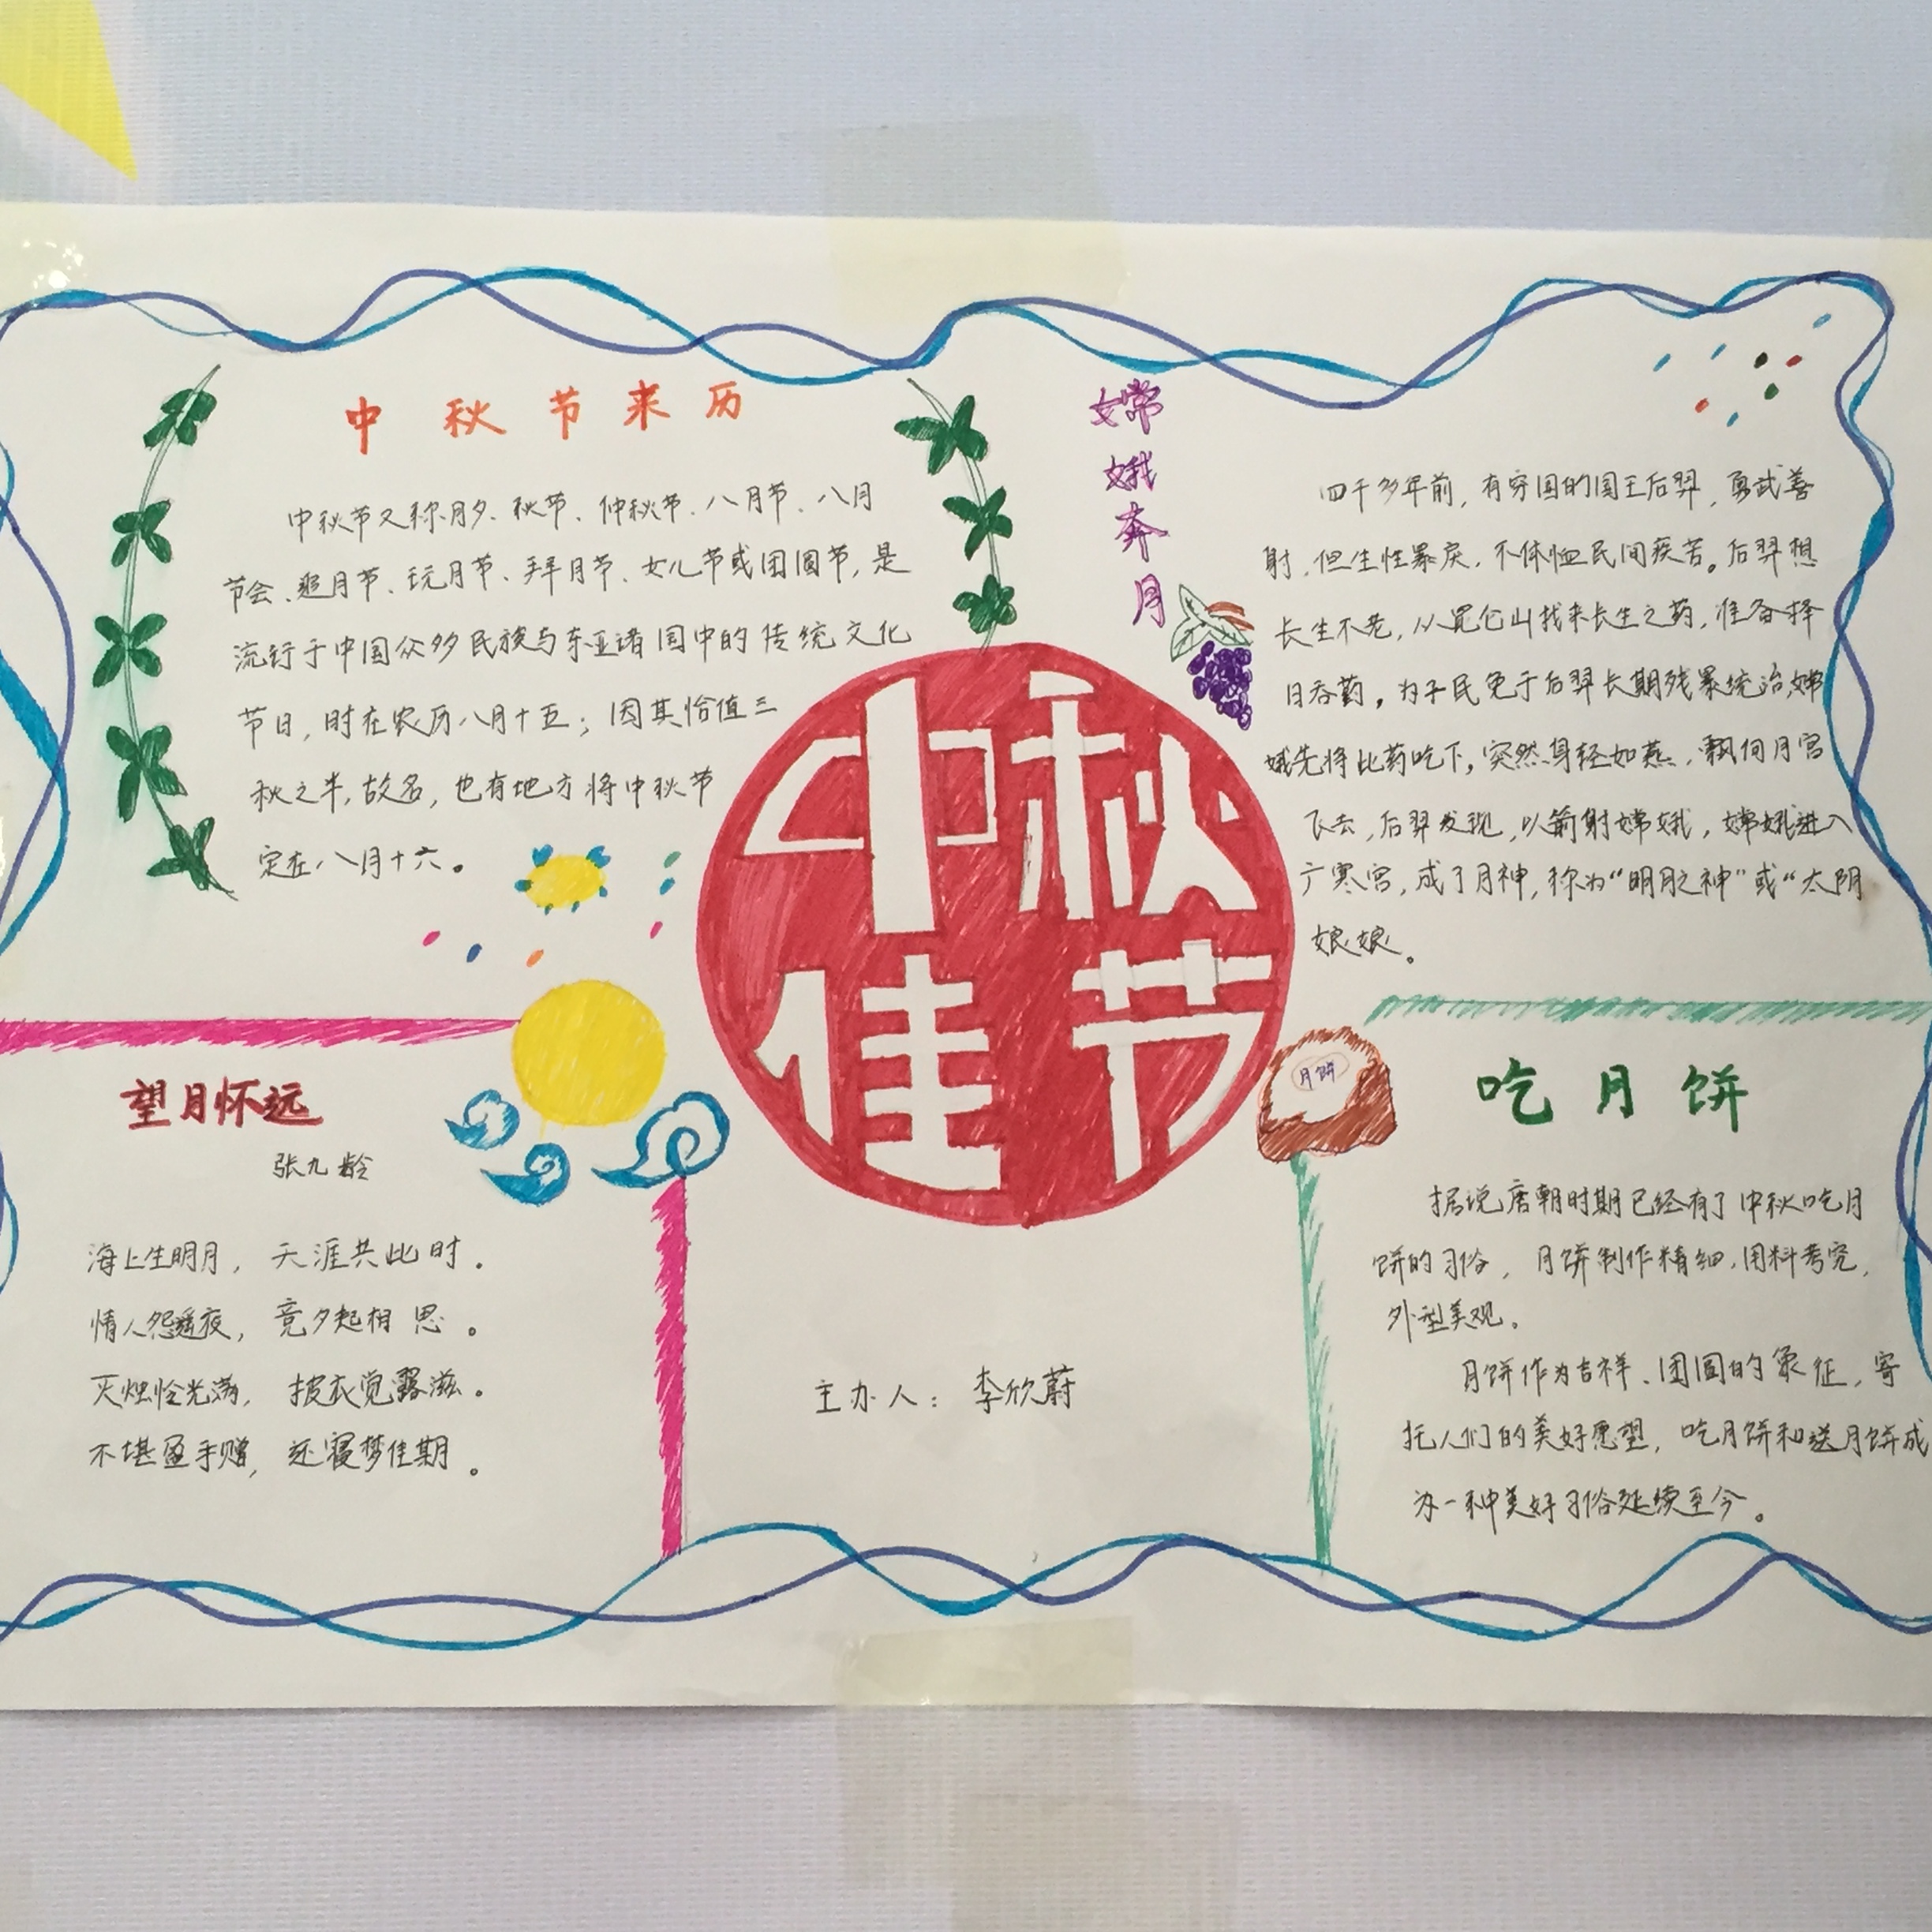 中秋节来历
中秋节又称月夕、秋节、仲秋节、八月节、八月
节会、追月节、玩月节、拜月节、女儿节或团圆节，是
流行于中国众多民族与东亚诸国中的传统文化
节日，时在农历八月十五；因其恰值三
秋之半，故名，也有地方将中秋节
定在八月十六。
嫦娥奔月
四千多年前，有穷国的国王后羿，勇武善
射，但生性暴戾，不体恤民间疾苦。后羿想
长生不老，从昆仑山找来长生之药，准备择
日吞药。为子民免于后羿长期残暴统治，嫦
娥先将此药吃下，突然身轻如燕，飘向月宫
飞去，后羿发现，以箭射嫦娥，嫦娥进入
广寒宫，成了月神，称为“明月之神”或“太阴
娘娘。
中秋
佳节
望月怀远
张九龄
海上生明月，天涯共此时。
情人怨遥夜，竟夕起相思。
灭烛怜光满，披衣觉露滋。
不堪盈手赠，还寝梦佳期。
主办人：李欣蔚
月饼
吃月饼
据说唐朝时期已经有了中秋吃月
饼的习俗，月饼制作精细，用料考究，
外型美观。
月饼作为吉祥、团圆的象征，寄
托人们的美好愿望，吃月饼和送月饼成
为一种美好习俗延续至今。